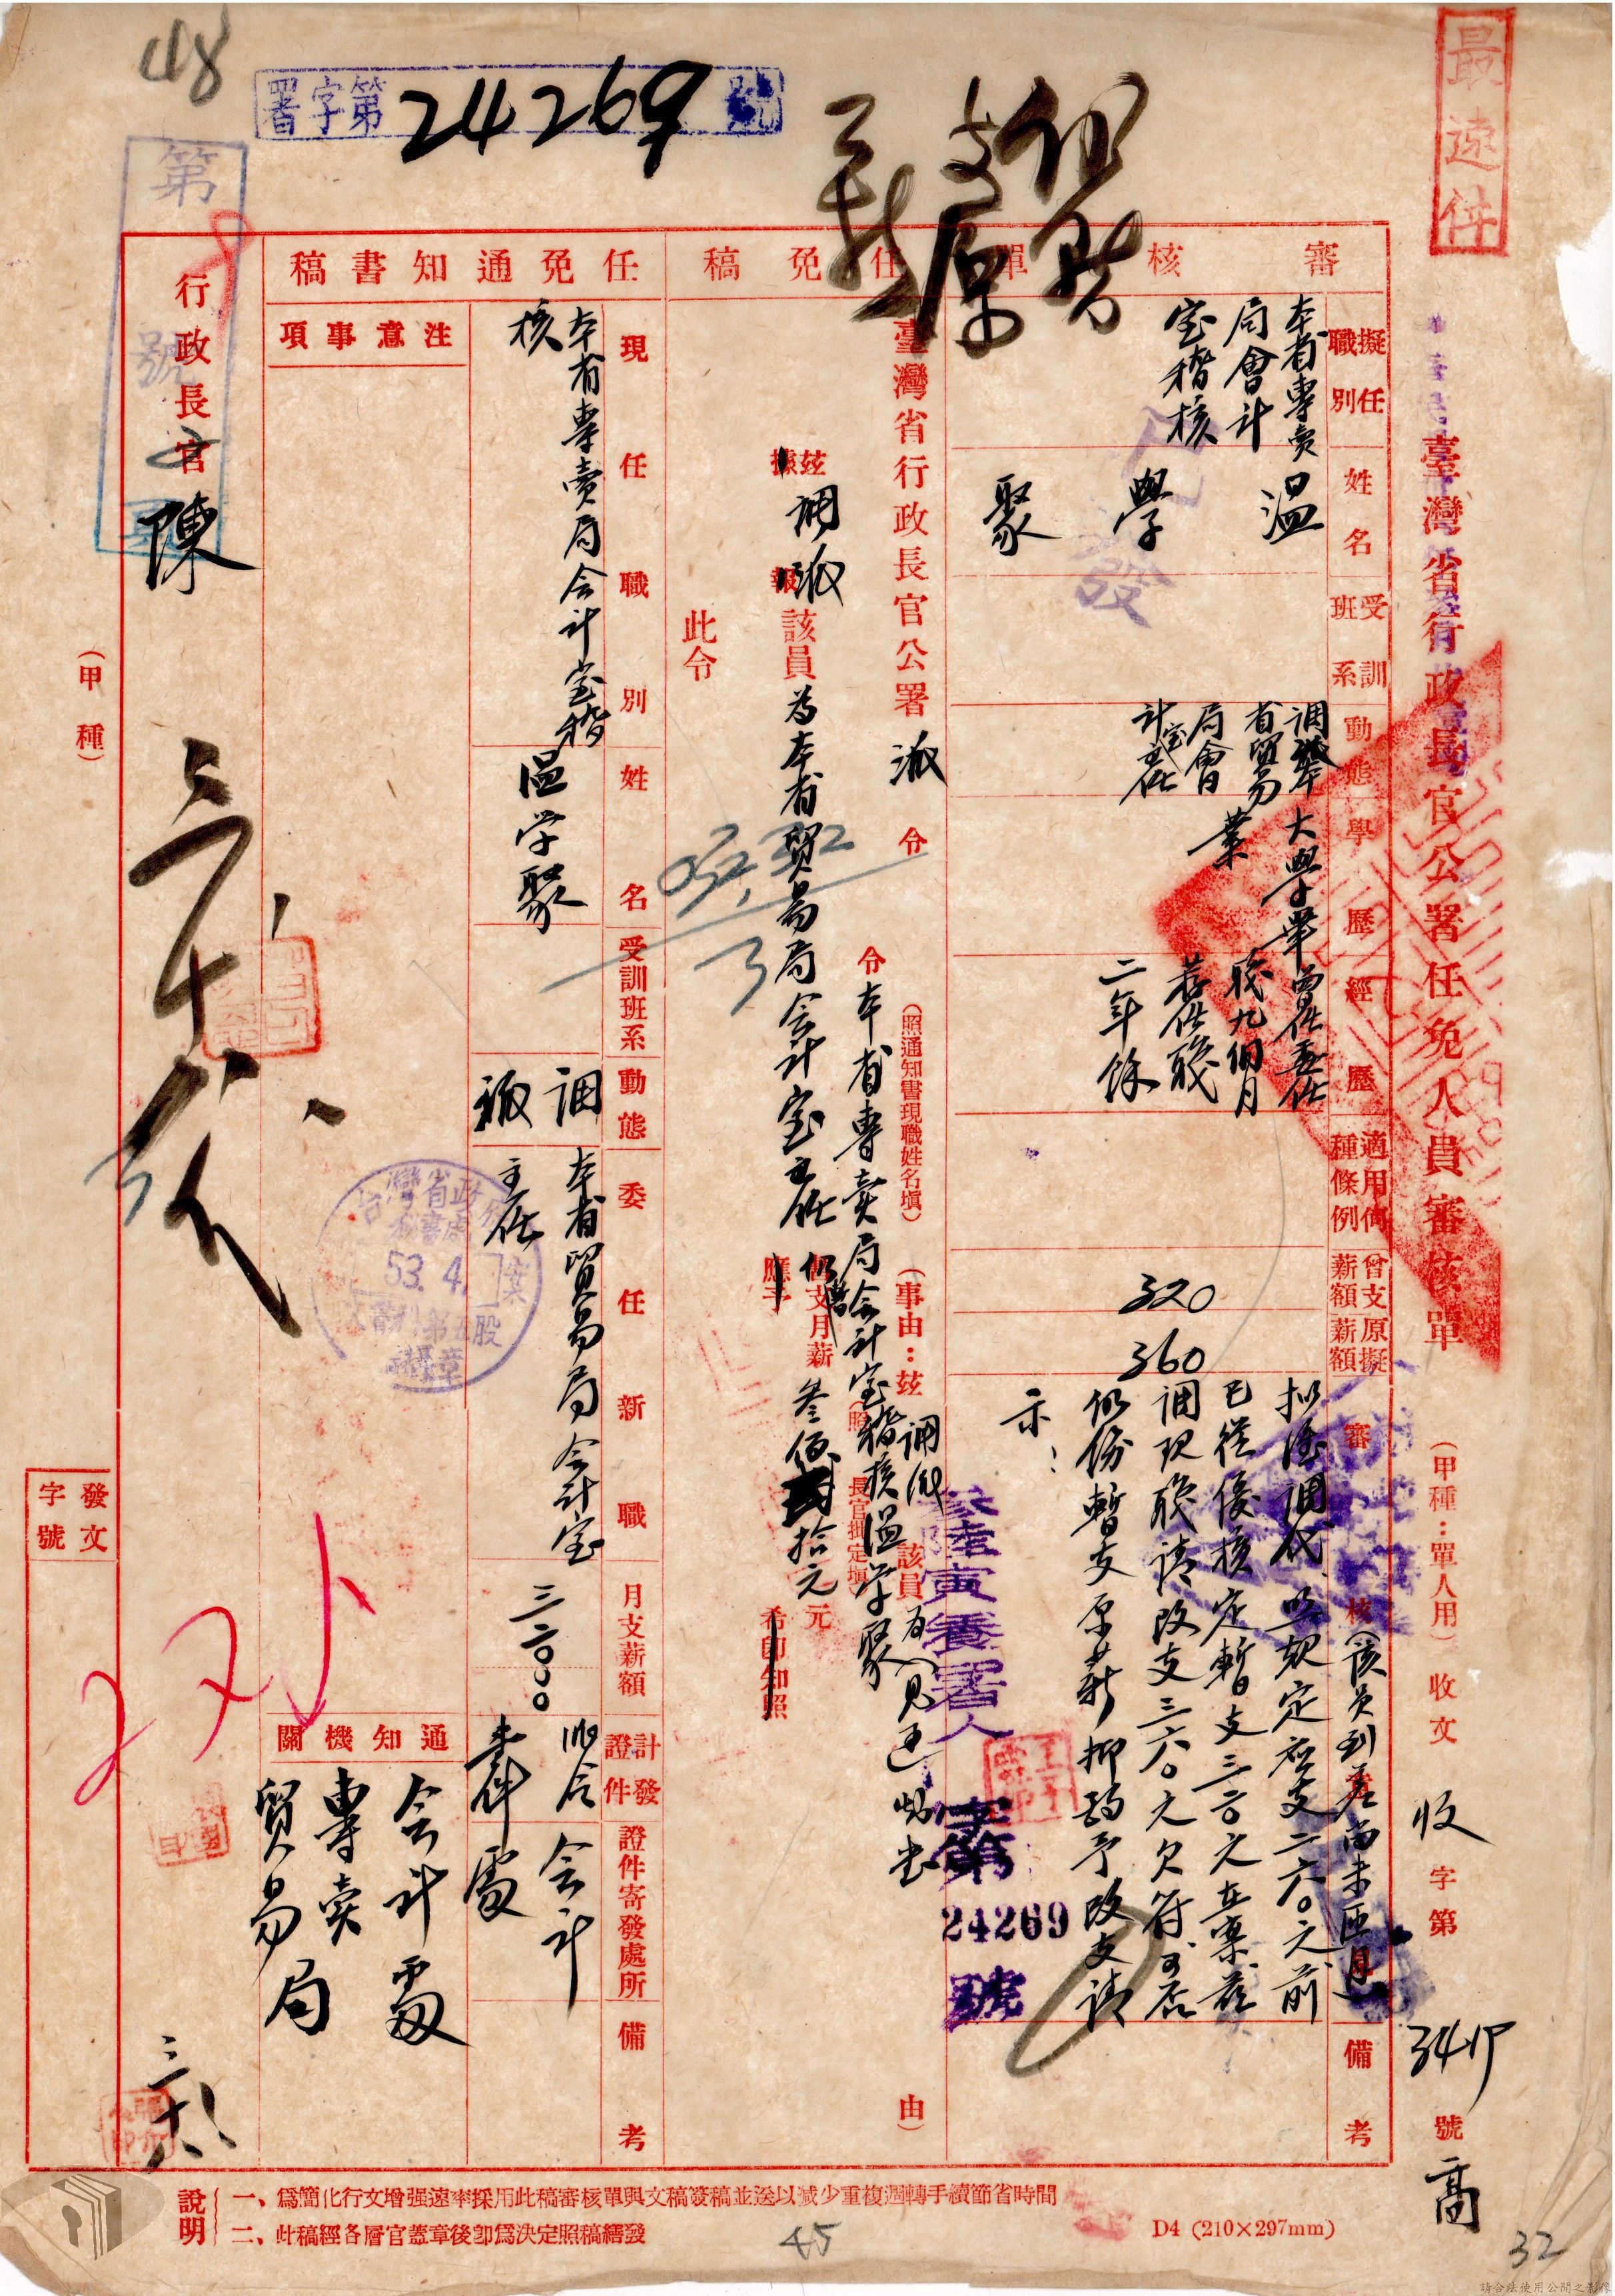 最速件
48
署字第24269號
仍暫
支原
薪
臺灣省行政長官公署任免人員審核單
（甲種：單人用）收文 收 字第 3419 號
高
審核單
擬任職別
本省專賣
局會計
室稽核
姓名
溫學聚
受訓班系
動態
調本
省貿易
局會
計室主任
學歷
大學畢
業
經歷
曾任委任
職九個月
荐任職
二年餘
適用何種條例
曾支薪額
320
原擬薪額
360
審核
（該員到差尚未逾月）
擬准調代，照規定應支二六〇元前
已從優核定暫支三二〇元在案茲
調現職請改支三六〇元欠符可否
仍份暫支原薪抑或予改支請
示：
備考
任免稿
臺灣省行政長官公署 派 令
（事由：茲調派該員為（見通知書 由）
（照通知書現職姓名填）
參陸寅養署人字第24269號
令本省專賣局會計室稽核溫學聚
茲調派該員為本省貿易局會計室主任仍暫支月薪叁佰貳拾元
據報
應予
（照長官批定填）
元
希即知照
此令
032.32
3
任免通知書稿
現任職別
本省專賣局会计室稽
核
姓名
溫学聚
受訓班系
動態
調派
委任新職
本省貿易局会计室
主任
月支薪額
三二〇〇〇
計發證件
派令
壹件
證件寄發處所
会计
處
備考
注意事項
通知機關
会计處
專賣
貿易局
台灣省政府
秘書處
53.4.
行政長官 陳
第
號
（甲種）
發文字號
說明
一、爲簡化行文增强速率採用此稿審核單與文稿簽稿並送以减少重複週轉手續節省時間
二、此稿經各層官蓋章後卽爲決定照稿繕發
D4 (210×297mm)
45
32
請合法使用公開之影像